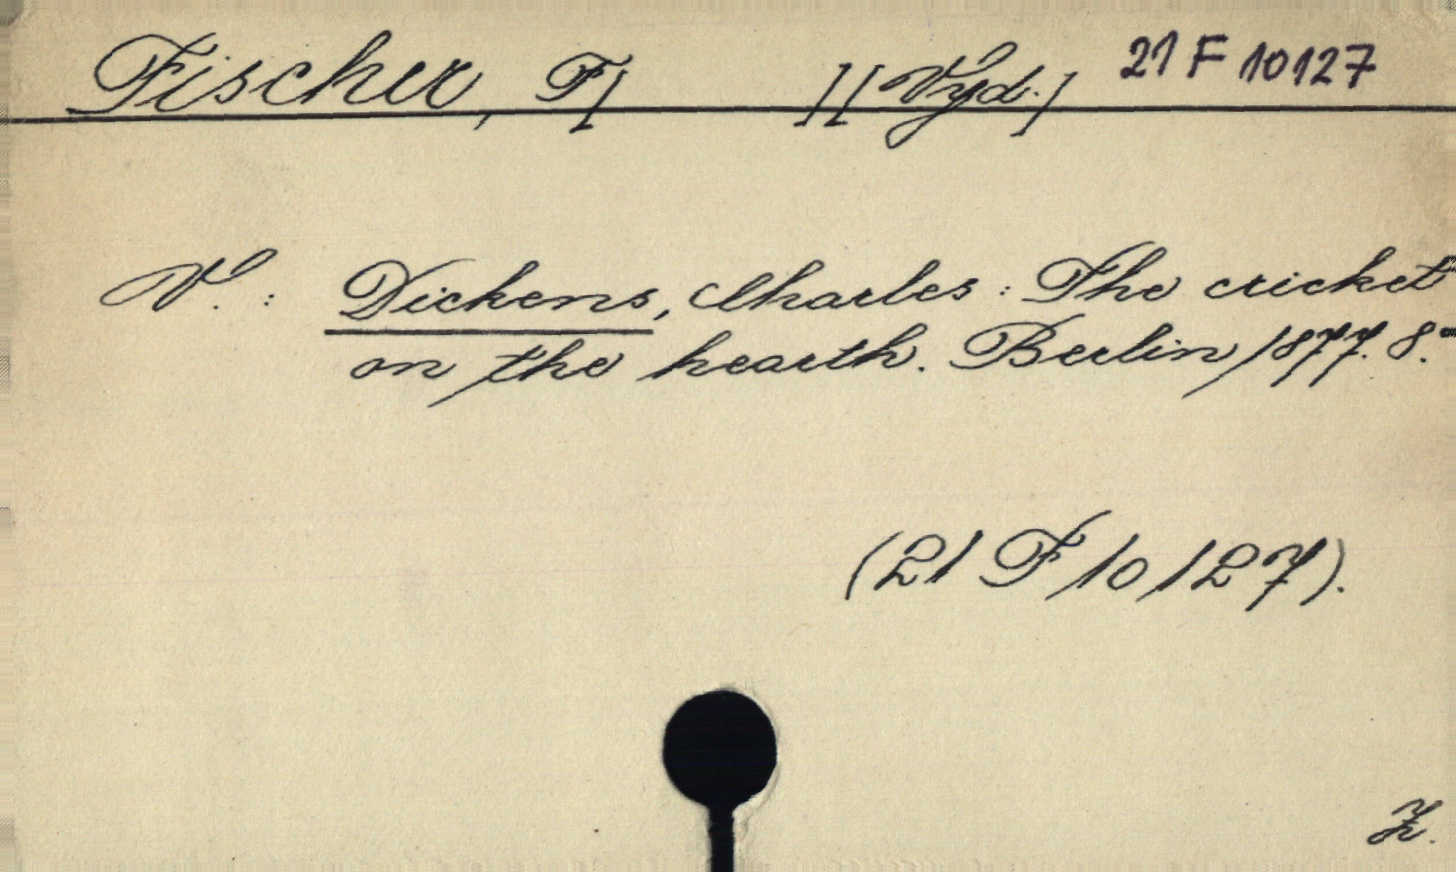 Fischer, F[ ] [Vyd.] 21 F 10127
V. : Dickens, Charles : The cricket
on the hearth. Berlin 1877. 8.°
(21 F 10127).
Ž.